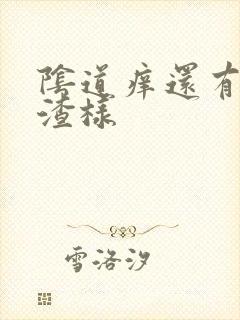 陰道痒還有
渣様
雪洛汐